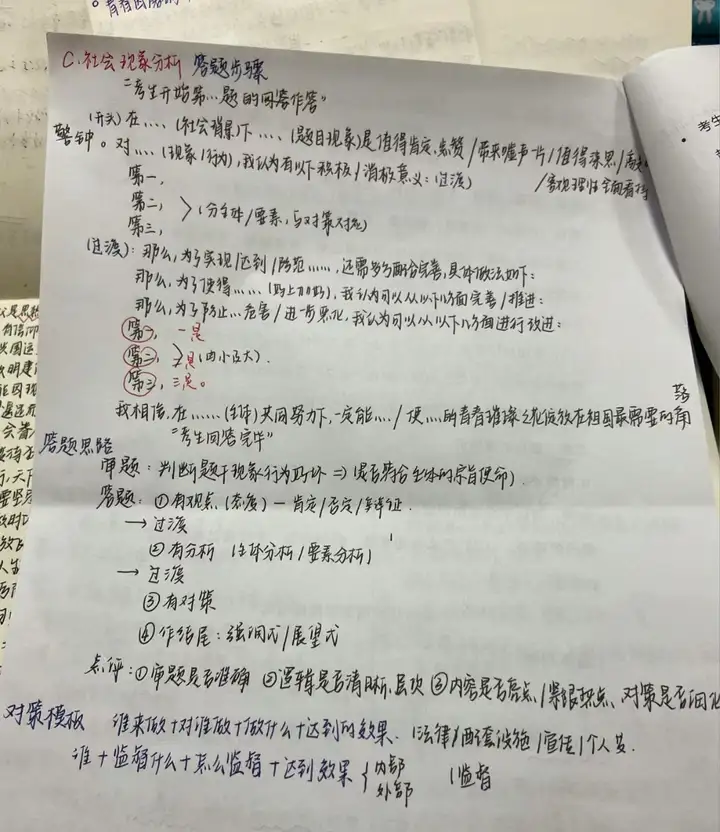 C.社会现象分析 答题步骤
"考生开始第…题的回答作答"
(开头)在……(社会背景)下……(题目现象)是值得肯定、点赞/带来嘘声一片/值得深思/敲响
警钟。对……(现象/行为),我认为有以下积极/消极意义:(过渡) /客观理性全面看待
第一,
第二, >(分主体/要素,与对策对抗)
第三,
(过渡):那么,为了实现/达到/防范……,还需多多配合完善,具体做法如下:
那么,为了使得……(好上加好),我认为可以从以下几方面完善/推进:
那么,为了防止…危害/进一步恶化,我认为可以从以下几方面进行改进:
第一,一是
第二, >二是(由小及大).
第三,三是。
我相信,在……(主体)共同努力下,一定能…/使…的青春璀璨之花绽放在祖国最需要的角落
"考生回答完毕"
答题思路
审题:判断题干现象行为好坏⇒(是否符合主体的宗旨使命)
答题:①有观点(态度)—肯定/否定/辩证.
→过渡
②有分析 (主体分析/要素分析)
→过渡
③有对策
④作结尾:强调式/展望式
点评:①审题是否准确 ②逻辑是否清晰、层次 ③内容是否亮点/紧跟热点、对策是否细化
对策模板 谁来做+对谁做+做什么+达到的效果. (法律)/配套设施/宣传/个人等.
谁+监督什么+怎么监督+达到效果{内部 (监督
外部
考生